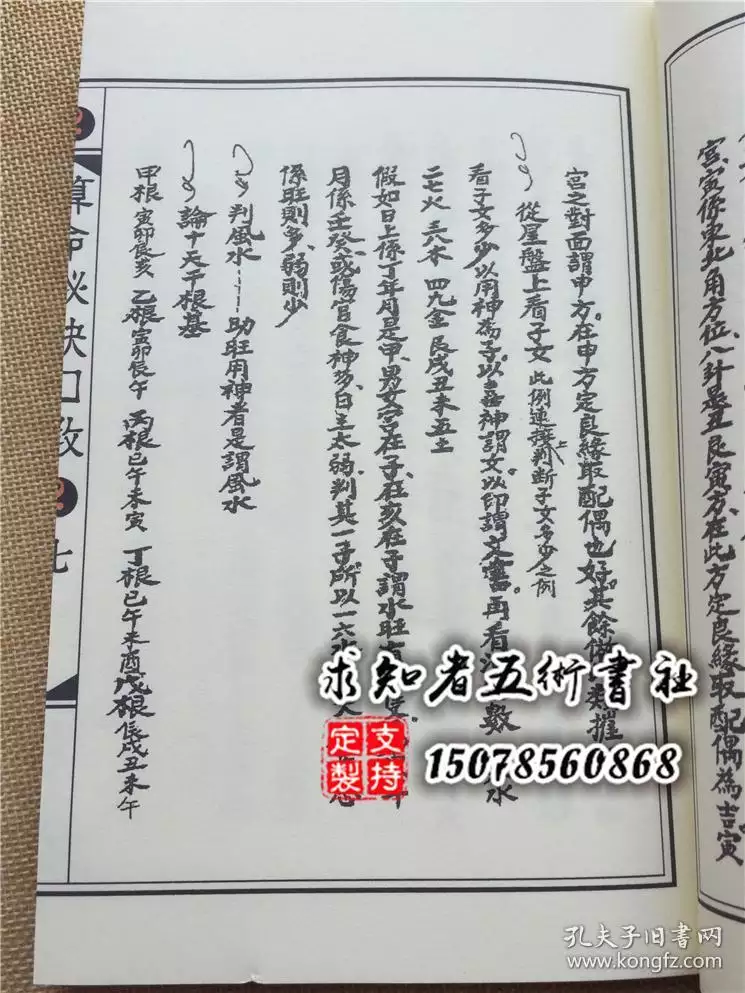 宫寅係東北角方位八計是丑艮寅方在此方定良緣取配偶為吉寅
宮之對面謂申方。在申方定良緣取配偶也好。其餘
從星盤上看子女 此例連接上判斷子女多少之例
看子女多少以用神為子。以喜神謂女以印謂文書。再看 數 水
二七火 三八木 四九金 艮戌丑未五土
假如日上係丁年月是甲、男女宮在子、在亥在子謂水旺
月係壬癸、或傷官食神多、日主太弱、判其一子所以一六水
係旺則多、弱則少
判風水——助旺用神者是謂風水
論十天干根基
甲根 寅卯辰亥 乙根 寅卯辰午 丙根 巳午未寅 丁根 巳午未酉 戊根 辰戌丑未午
算命秘訣口教
七
求知者五術書社
支持定製
15078560868
孔夫子旧書网
www.kongfz.com